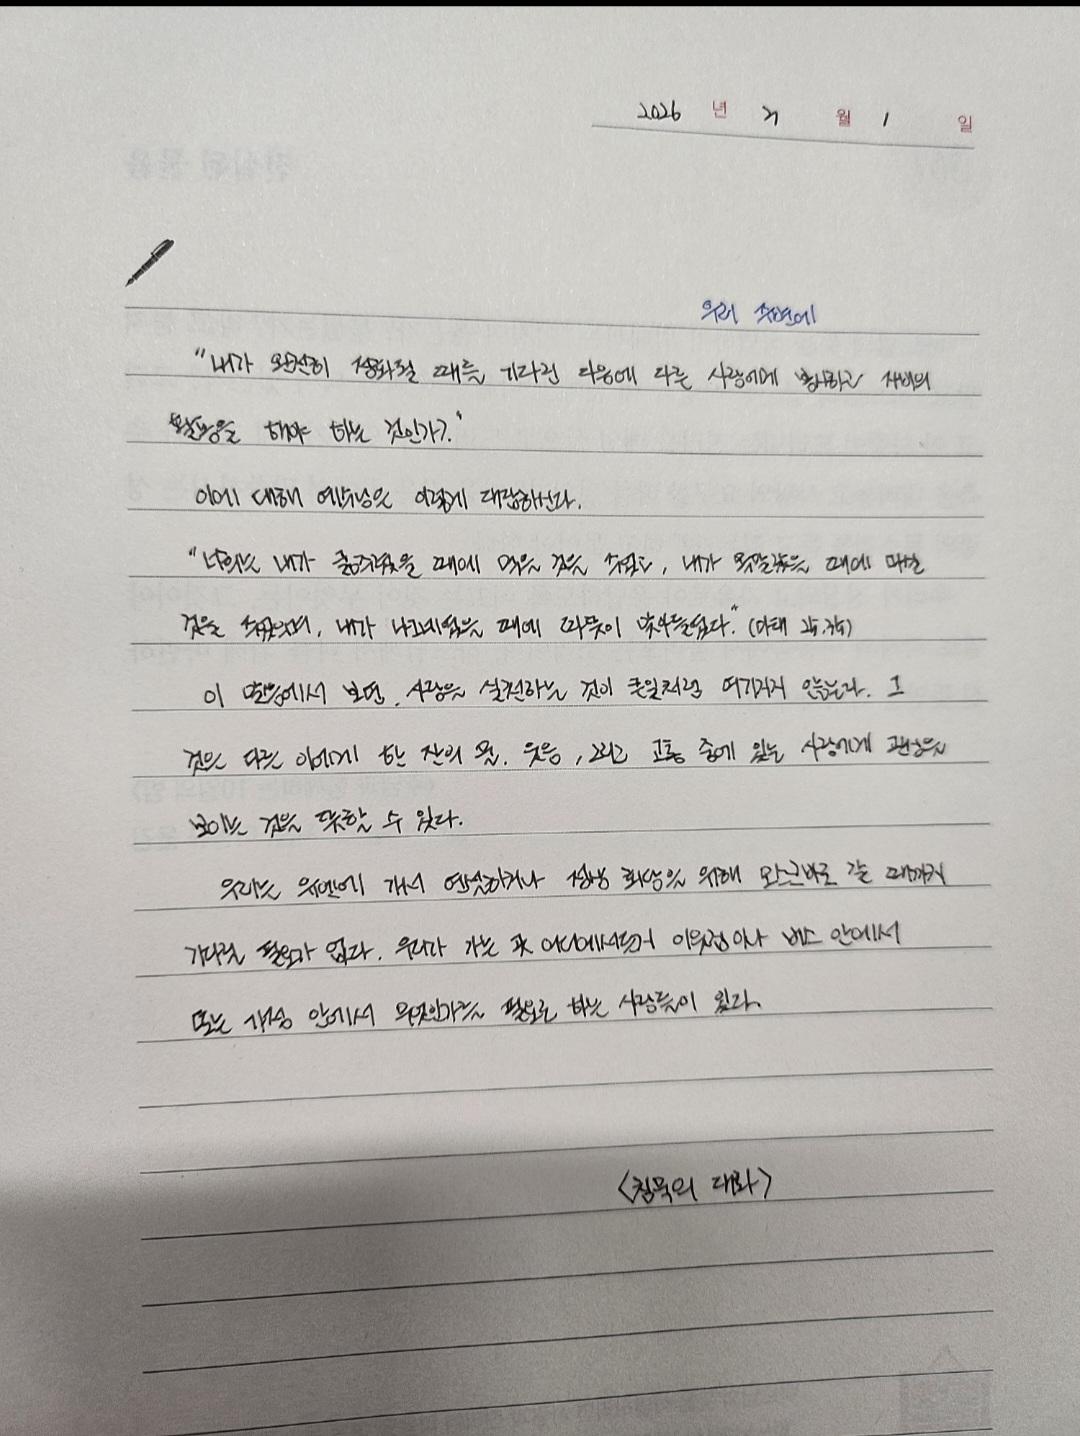 2026 년 월 1 일
우리 주변에
"내가 완전히 정화될 때를 기다린 다음에 다른 사람에게 봉사하고 자비의
활동을 해야 하는 것인가?"
이에 대해 예수님은 이렇게 대답하신다.
"너희는 내가 굶주렸을 때에 먹을 것을 주었고, 내가 목말랐을 때에 마실
것을 주었으며, 내가 나그네였을 때에 따뜻이 맞아들였다." (마태 25,35)
이 말씀에서 보면, 사랑을 실천하는 것이 큰일처럼 여겨지지 않는다. 그
것은 다른 이에게 한 잔의 물, 웃음, 그리고 고통 중에 있는 사람에게 관심을
보이는 것을 뜻할 수 있다.
우리는 위안에 가서 연설하거나 정상 회담을 위해 모스크바로 갈 때까지
기다릴 필요가 없다. 우리가 가는 곳 어디에서든지 이웃집이나 버스 안에서
또는 가정 안에서 무엇인가를 필요로 하는 사람들이 있다.
<침묵의 대화>